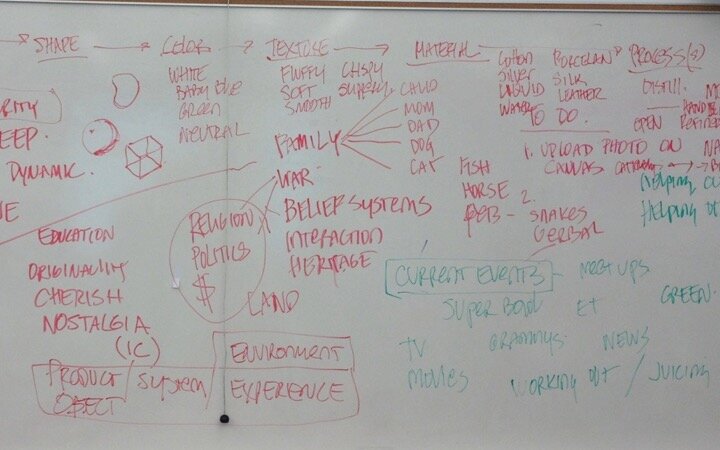 SHAPE
COLOR
TEXTURE
MATERIAL
PROCESS(S)
WHITE
BABY BLUE
GREEN
NEUTRAL
FLUFFY
SOFT
SMOOTH
CRISPY
SLIPPERY
COTTON
SILVER
LIQUID
WATER
PORCELAIN
SILK
LEATHER
DISTILL
OPEN
FAMILY
CHILD
MOM
DAD
DOG
CAT
TO DO.
1. UPLOAD PHOTO ON
CANVAS
FISH
HORSE
2.
SNAKES
VERBAL
HELPING
HELPING
EEP
DYNAMIC.
WAR
BELIEF SYSTEMS
INTERACTION
HERITAGE
RELIGION
POLITICS
$
LAND
EDUCATION
ORIGINALITY
CHERISH
NOSTALGIA
(IC)
PRODUCT/
OBJECT
SYSTEM/
ENVIRONMENT
EXPERIENCE
CURRENT EVENTS - MEETUPS
SUPER BOWL
ET
GREEN.
TV
GRAMMYS
NEWS
MOVIES
WORKING OUT / JUICING